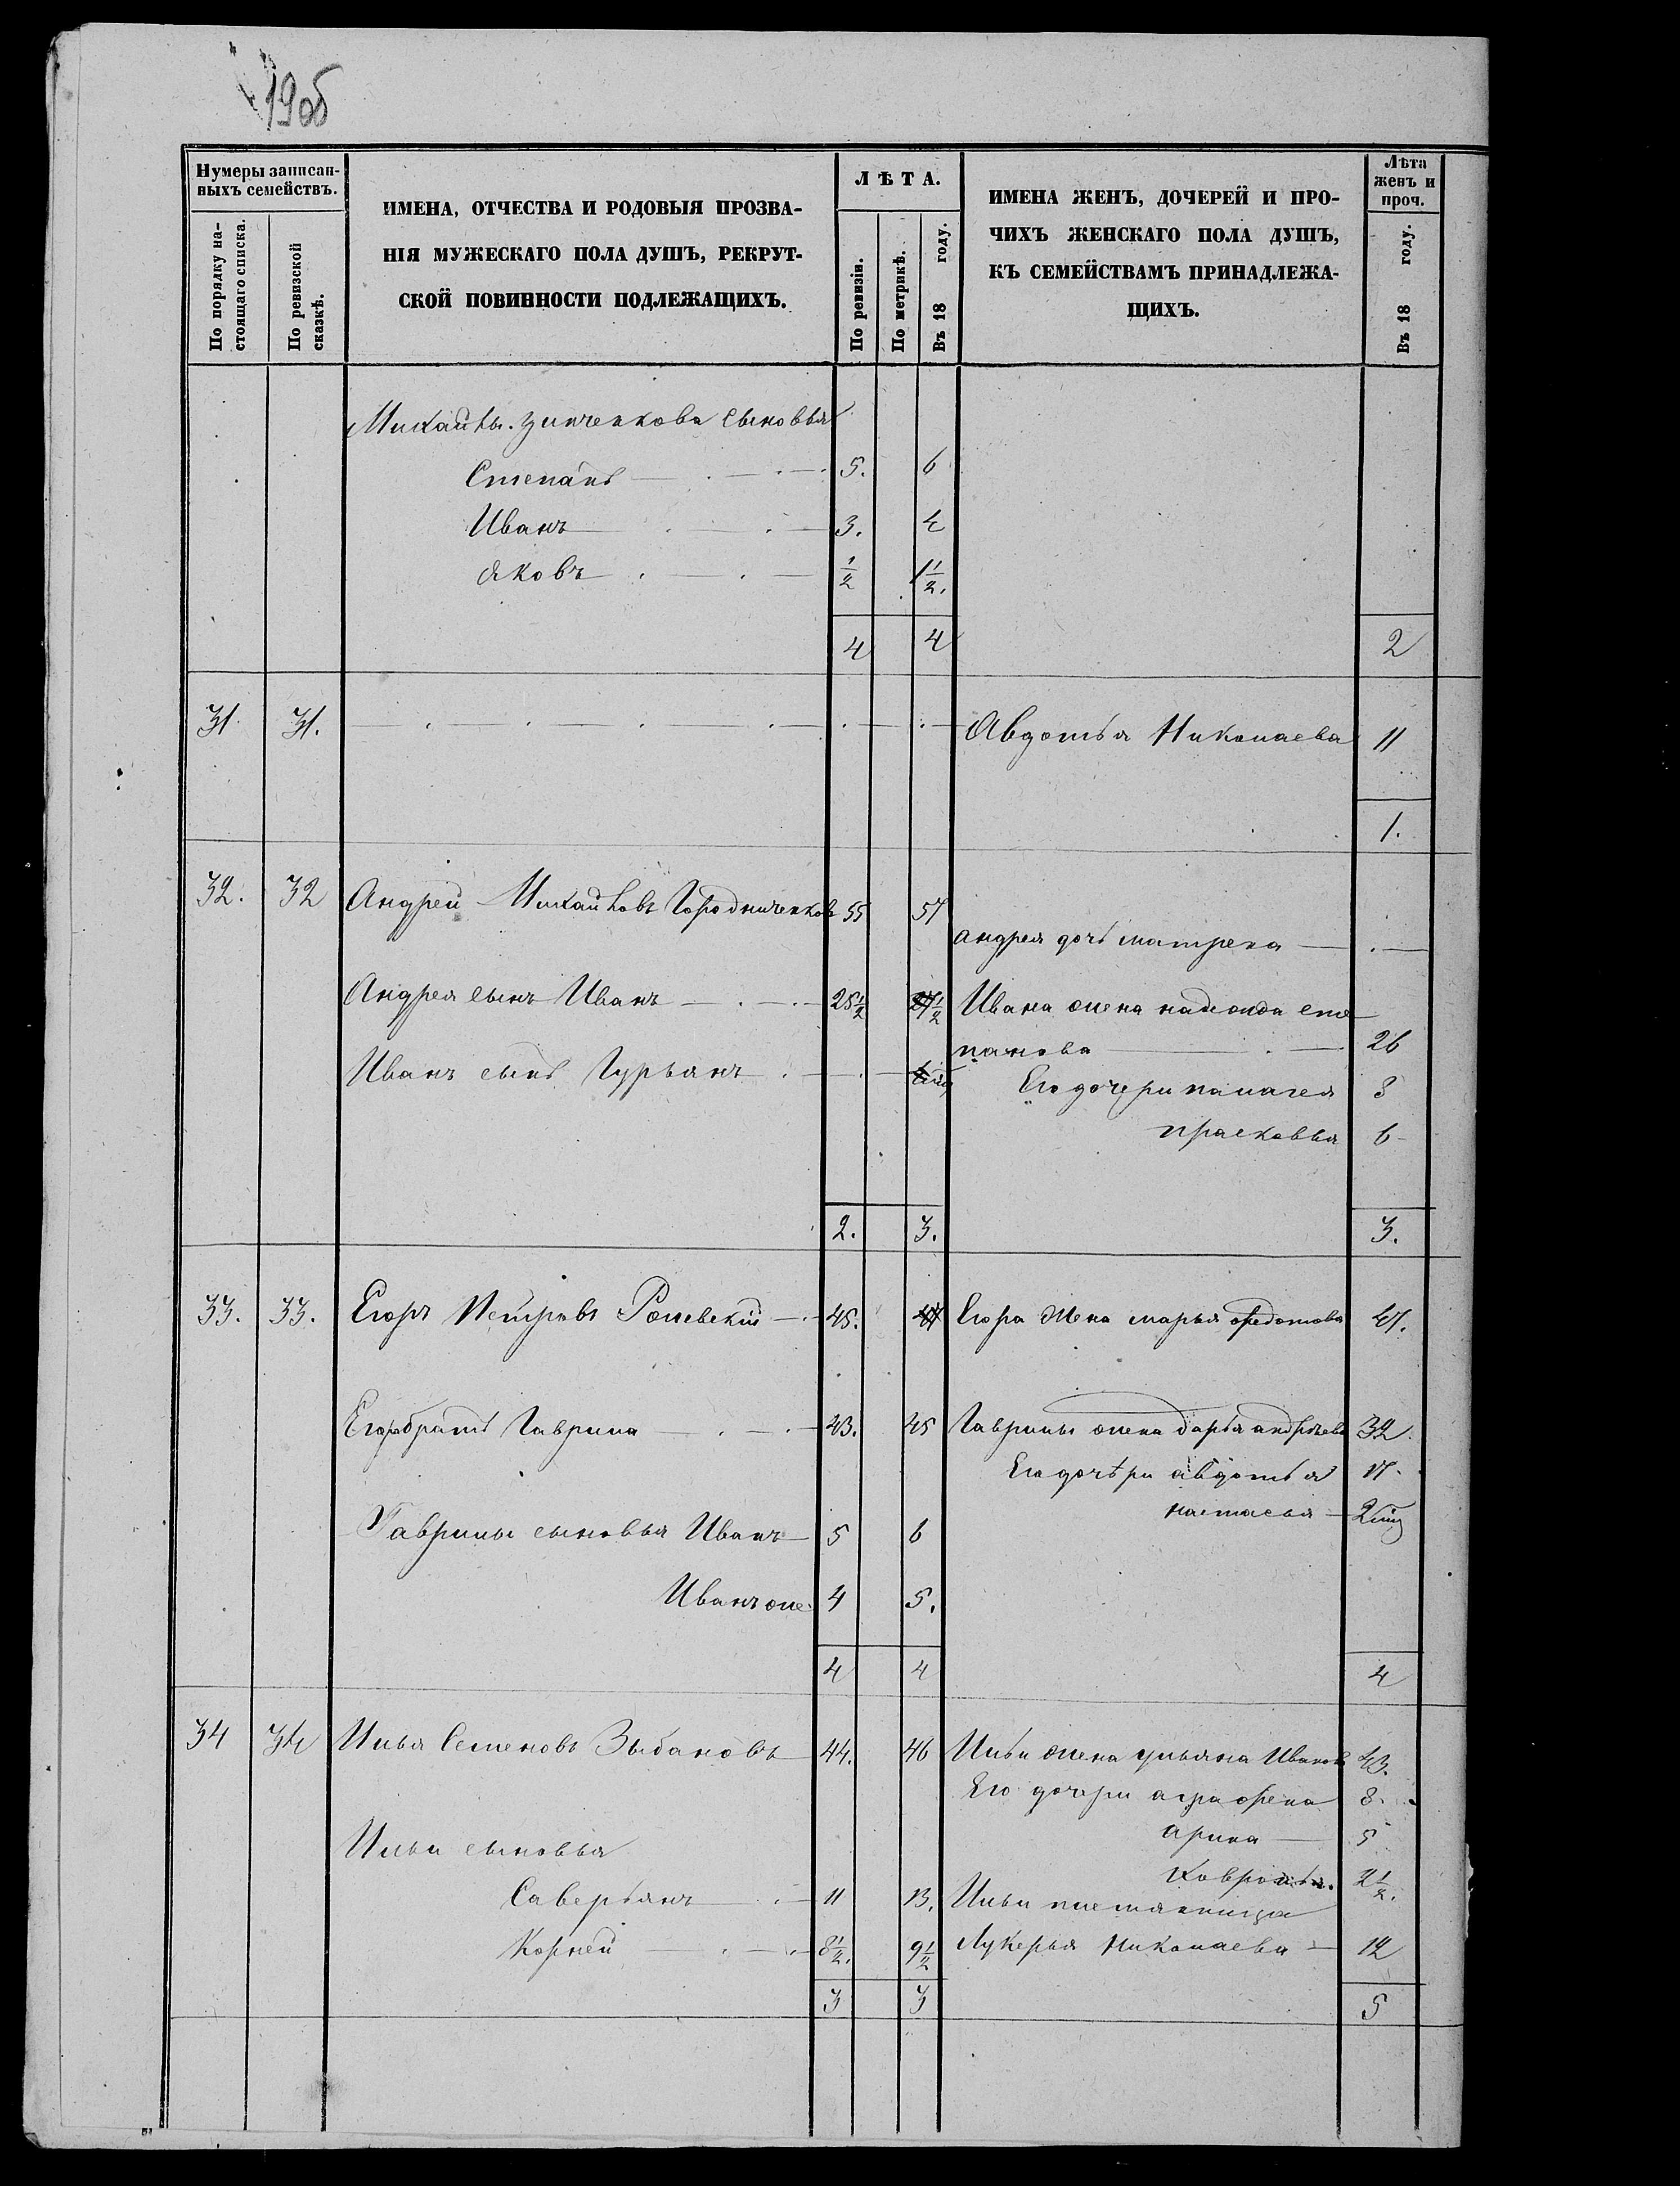 19об
Нумеры записан-
ныхъ семействъ.
По порядку на-
стоящаго списка.
По ревизской
сказкѣ.
ИМЕНА, ОТЧЕСТВА И РОДОВЫЯ ПРОЗВА-
НІЯ МУЖЕСКАГО ПОЛА ДУШЪ, РЕКРУТ-
СКОЙ ПОВИННОСТИ ПОДЛЕЖАЩИХЪ.
ЛѢТА.
По ревизіи.
По метрикѣ.
Въ 18 году.
ИМЕНА ЖЕНЪ, ДОЧЕРЕЙ И ПРО-
ЧИХЪ ЖЕНСКАГО ПОЛА ДУШЪ,
КЪ СЕМЕЙСТВАМЪ ПРИНАДЛЕЖА-
ЩИХЪ.
Лѣта
женъ и
проч.
Въ 18 году.
Михайлы Зинченкова сыновья
Степанъ 5. 6
Иванъ 3. 4
Яковъ 1/2 1 1/2.
4 4 2
31 31. Авдотья Николаева 11
1.
32. 32 Андрей Михайловъ Городниченковъ 55 57
андрея дочь матрена
Андрея сынъ Иванъ 25 1/2 27 1/2 Ивана жена надежда сте
панова 26
Иванъ сынъ Гурьянъ
Его дочери палагея 8
прасковья 6
2. 3. 3.
33. 33. Егоръ Петровъ 45. 47 Егора жена марья федотова 47.
Егора братъ Гаврила 43. 45 Гаврилы жена дарья андрѣева 32.
Его дочѣри авдотья 17.
настасья 2
Гаврилы сыновья Иванъ 5 6
Иванъ же 4 5.
4 4 4
34 34 Илья Семеновъ Зыбановъ 44. 46 Ильи жена ульяна Иванов 43.
Его дочери аграфена 8.
арина 5
Ильи сыновья
2 1/2.
Саверьянъ 11 13. Ильи племянница
Корней 8 1/2. 9 1/2 Лукерья Николаева 12
3 3 5